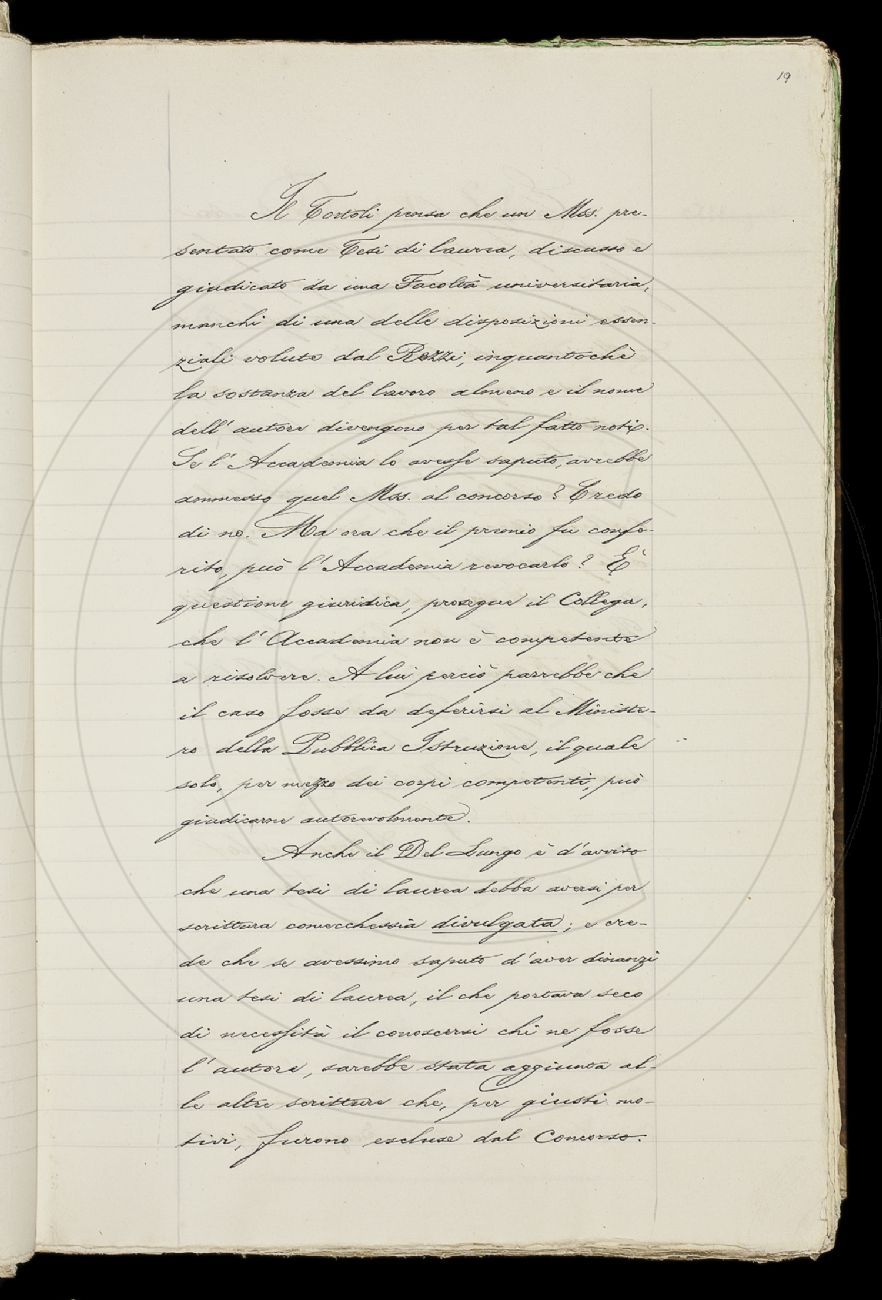 19
Il Tortoli pensa che un Mss. pre-
sentato come Tesi di laurea, discusso e
giudicato da una Facoltà universitaria,
manchi di una delle disposizioni essen-
ziali volute dal Rezzi, inquantochè
la sostanza del lavoro almeno e il nome
dell'autore divengono per tal fatto noti.
Se l'Accademia lo avesse saputo, avrebbe
ammesso quel Mss. al concorso? Credo
di no. Ma ora che il premio fu confe-
rito, può l'Accademia revocarlo? È
questione giuridica, prosegue il Collega,
che l'Accademia non è competente
a risolvere. A lui perciò parrebbe che
il caso fosse da deferirsi al Ministe-
ro della Pubblica Istruzione, il quale
solo, per mezzo dei corpi competenti, può
giudicarne autorevolmente.
Anche il Del Lungo è d'avviso
che una tesi di laurea debba aversi per
scrittura comecchessia divulgata; e cre-
de che se avessimo saputo d'aver dinanzi
una tesi di laurea, il che portava seco
di necessità il conoscersi chi ne fosse
l'autore, sarebbe stata aggiunta al-
le altre scritture che, per giusti mo-
tivi, furono escluse dal Concorso.